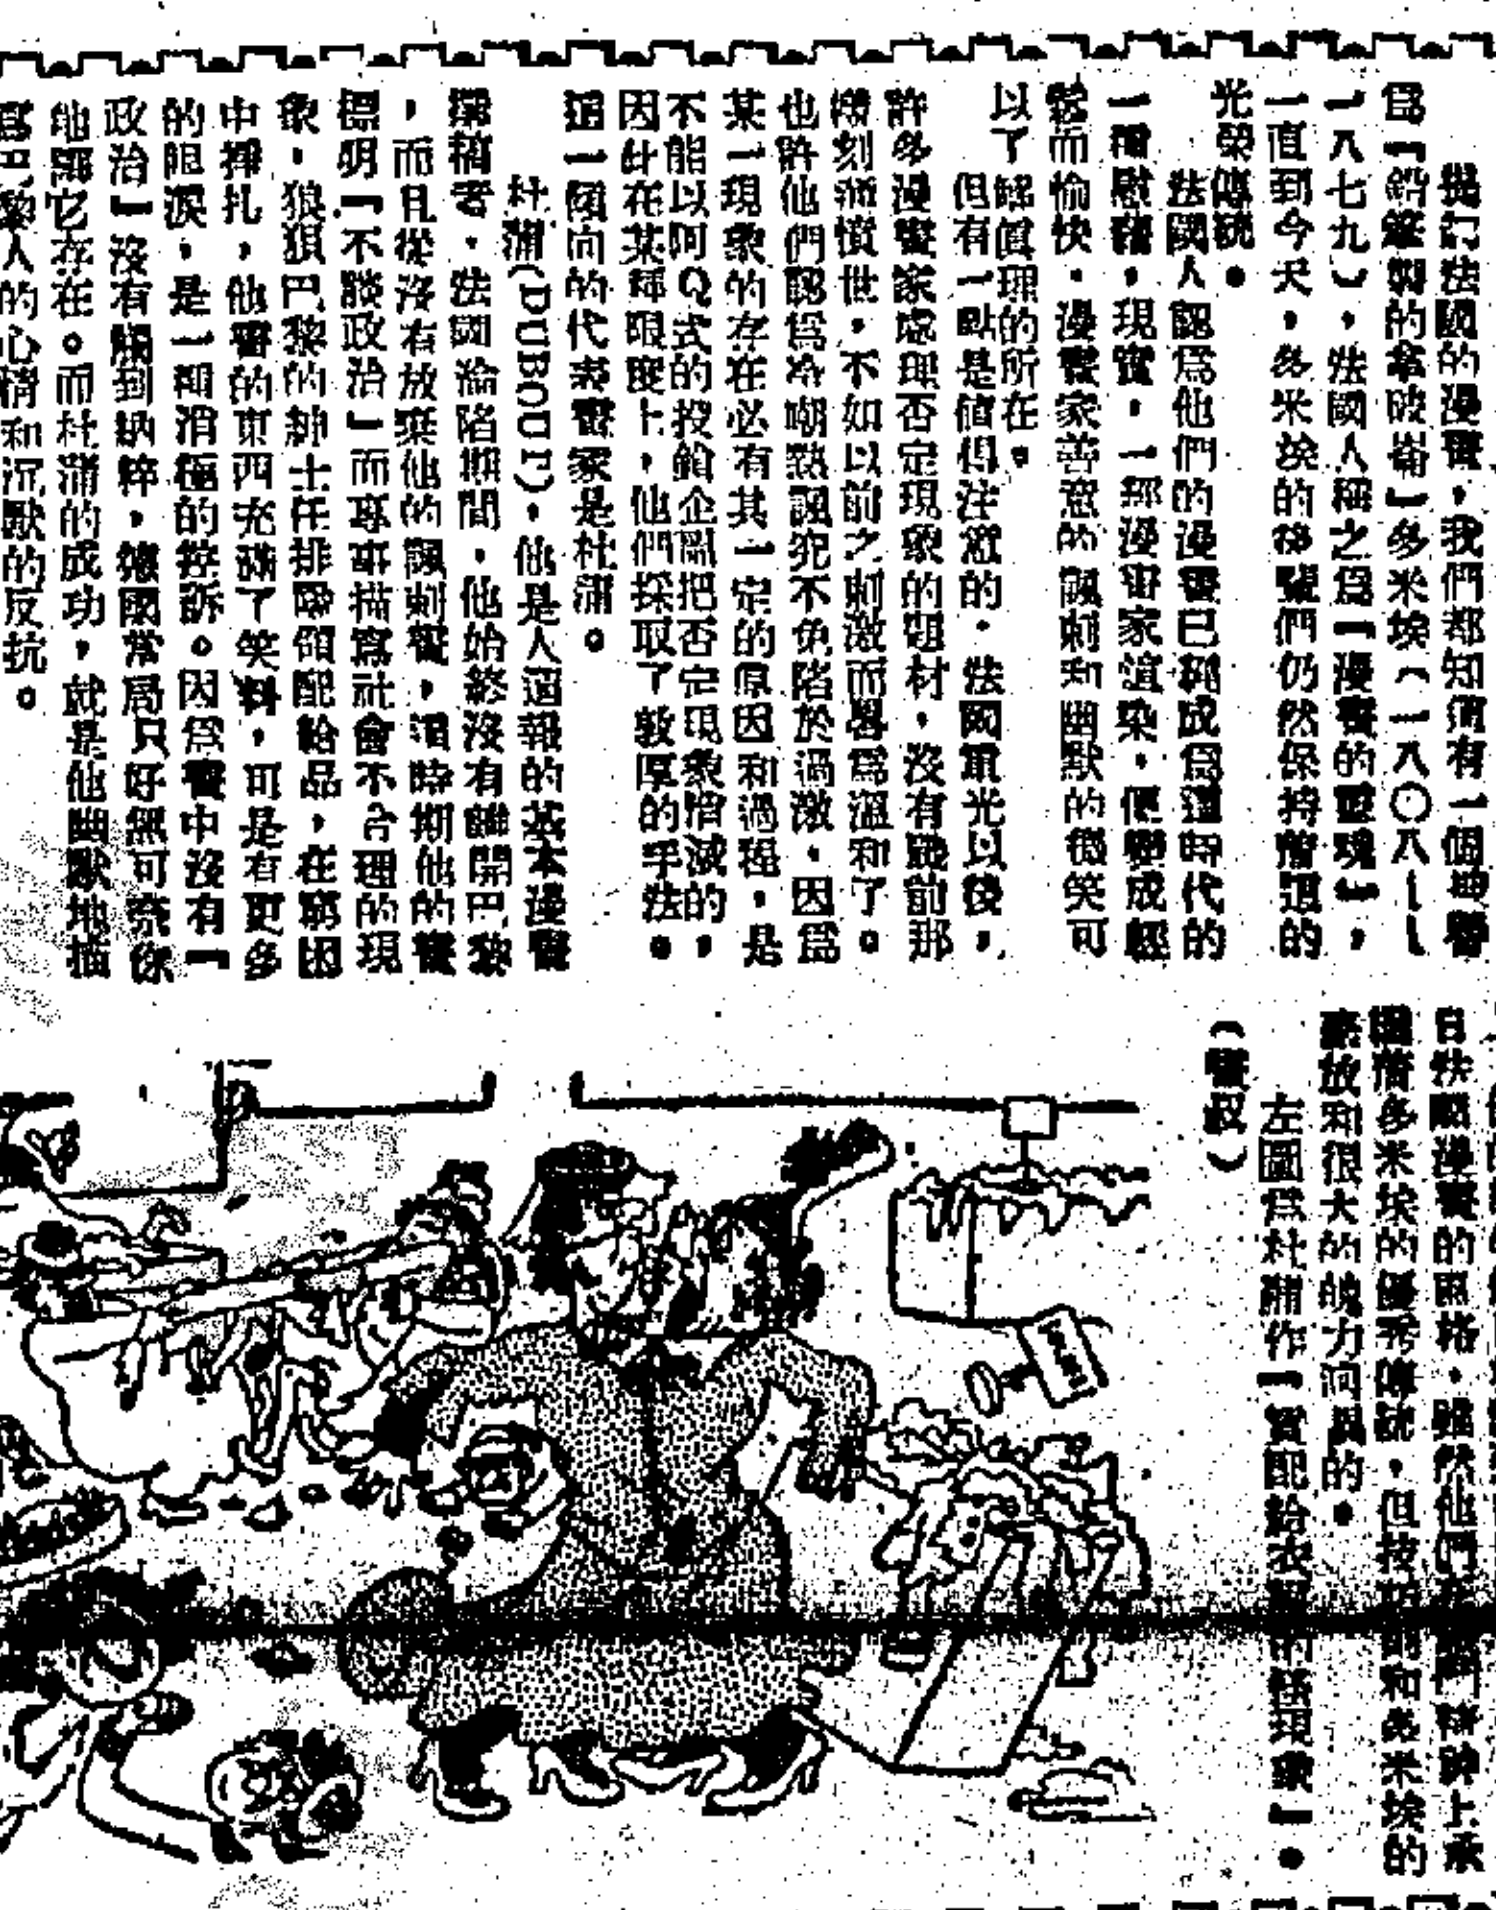 提到法國的漫畫，我們都知道有一個被譽
爲『鉛筆翱的拿破崙』多米埃（一八〇八——
一八七九），法國人稱之爲『漫畫的靈魂』，
一直到今天，多米埃的移驥們仍然保持舊這的
光榮傳統。
法國人認爲他們的漫畫已經成爲這時代的
一種慰藉，現實，一經漫畫家渲染，便變成輕
鬆而愉快，漫畫家善意的諷刺和幽默的微笑可
以了解眞理的所在。
但有一點是値得注意的，法國重光以後，
許多漫畫家處理否定現象的題材，沒有戰前那
樣刻 憤世，不如以前之刺激而畧爲溫和了。
也許他們認爲冷嘲熱諷究不免陷於過激，因爲
某一現象的存在必有其一定的原因和過程，是
不能以阿Q式的投鎗企圖把否定現象消滅的，
因此在某種限度上，他們採取了敦厚的手法。
這一傾向的代表畫家是杜蒲。
杜蒲(DUBOUT)，他是人道報的基本漫畫
撰稿者，法國淪陷期間，他始終沒有離開巴黎
，而且從沒有放棄他的諷刺畫，這時期他的畫
標明『不談政治』而專事描寫社會不合理的現
象，狼狽巴黎的紳士在排隊領配給品，在窮困
中掙扎，他畫的東西充滿了笑料，可是有更多
的眼淚，是一種消極的控訴。因爲畫中沒有『
政治』沒有觸到納粹，德國當局只好無可奈何
地 它存在。而杜蒲的成功，就是他幽默地描
寫巴黎人的心情和沉默的反抗。
日法國漫畫的風格，雖然他們在 精神上承
繼着多米埃的優秀傳統，但技巧 和多米埃的
豪放和很大的魄力 的。
左圖爲杜蒲作『實配給衣 的怪現象』。
（畫叔）